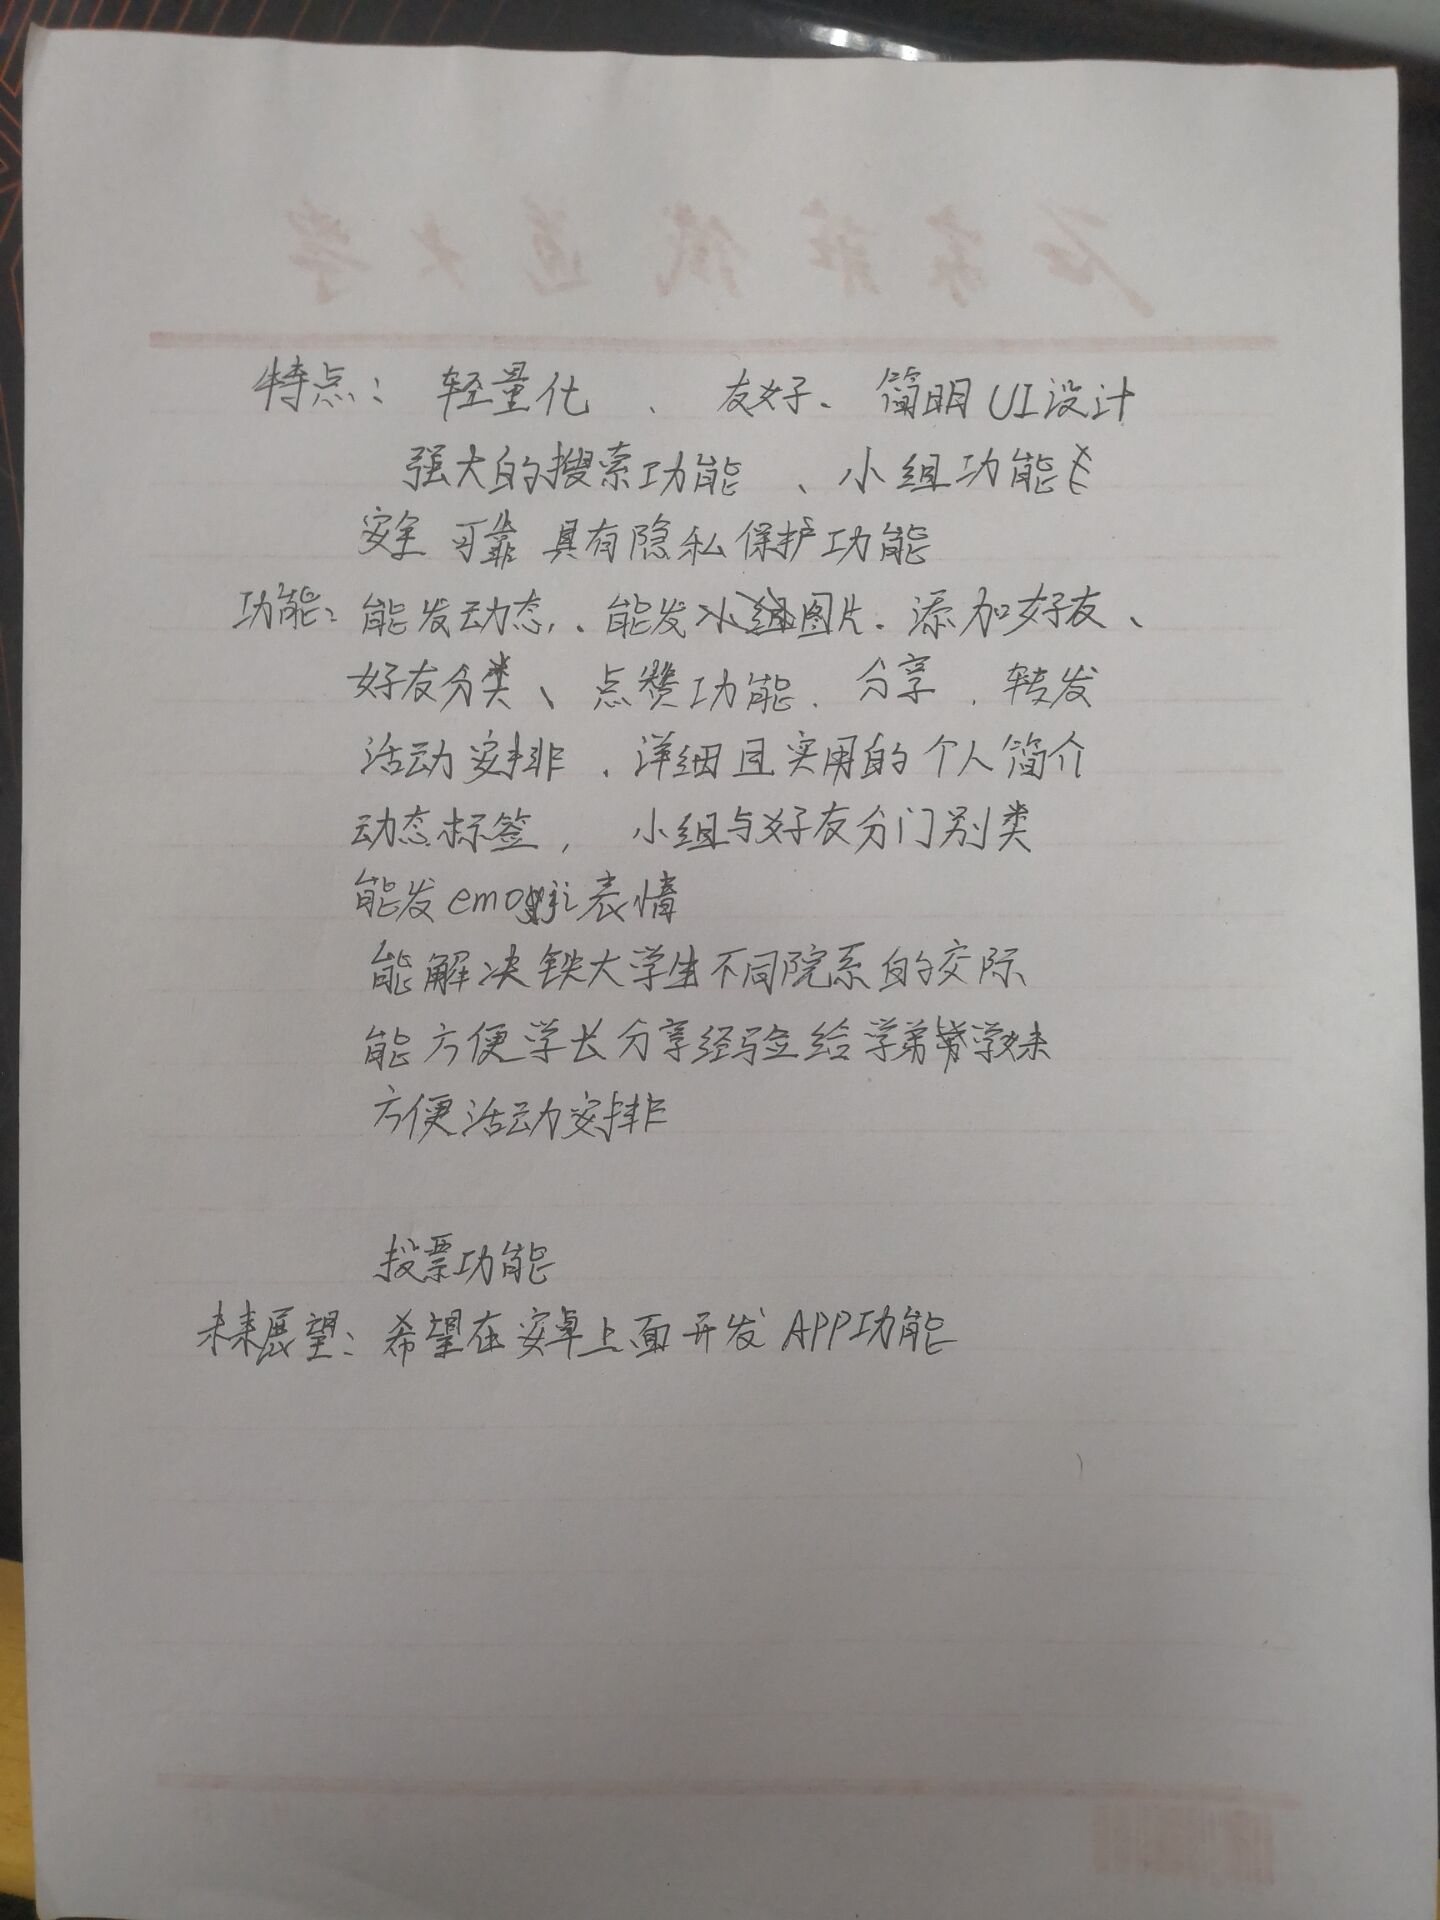 石家庄铁道大学
特点：轻量化、友好、简明UI设计
强大的搜索功能、小组功能
安全可靠 具有隐私保护功能
功能：能发动态、能发图片、添加好友、
好友分类、点赞功能、分享、转发
活动安排、详细且实用的个人简介
动态标签，小组与好友分门别类
能发emoji表情
能解决铁大学生不同院系的交际
能方便学长分享经验给学弟学妹
方便活动安排
投票功能
未来展望：希望在安卓上面开发APP功能